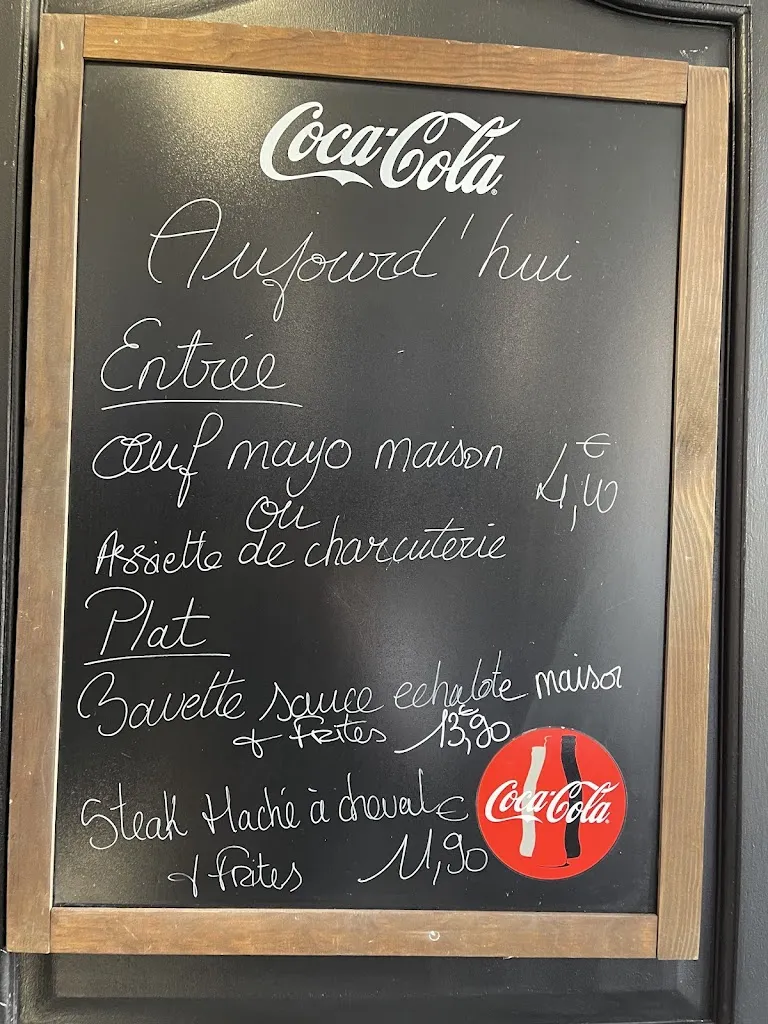 Coca-Cola
Aujourd'hui
Entrée
Œuf mayo maison
€
ou
Assiette de charcuterie
Plat
Bavette sauce echalote maison
+ Frites 13,90 €
Steak Haché à cheval
+ Frites 11,90 €
Coca-Cola